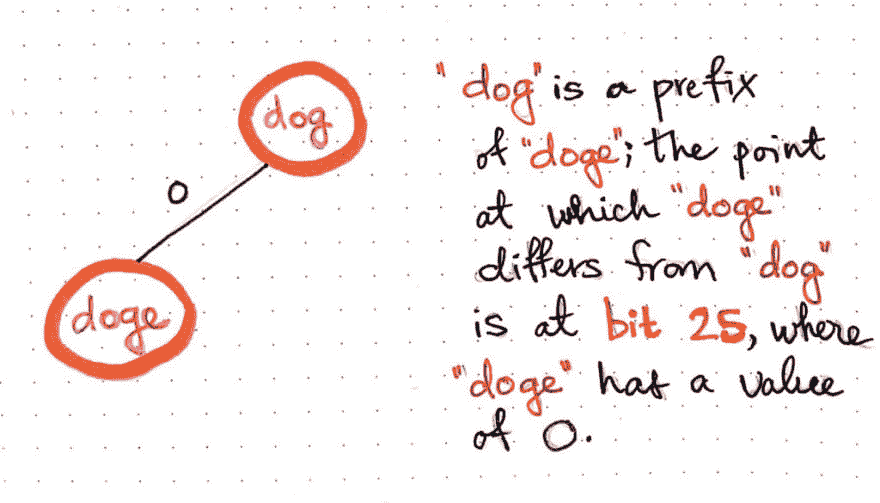 dog
0
doge
"dog" is a prefix
of "doge"; the point
at which "doge"
differs from "dog"
is at bit 25, where
"doge" has a value
of 0.